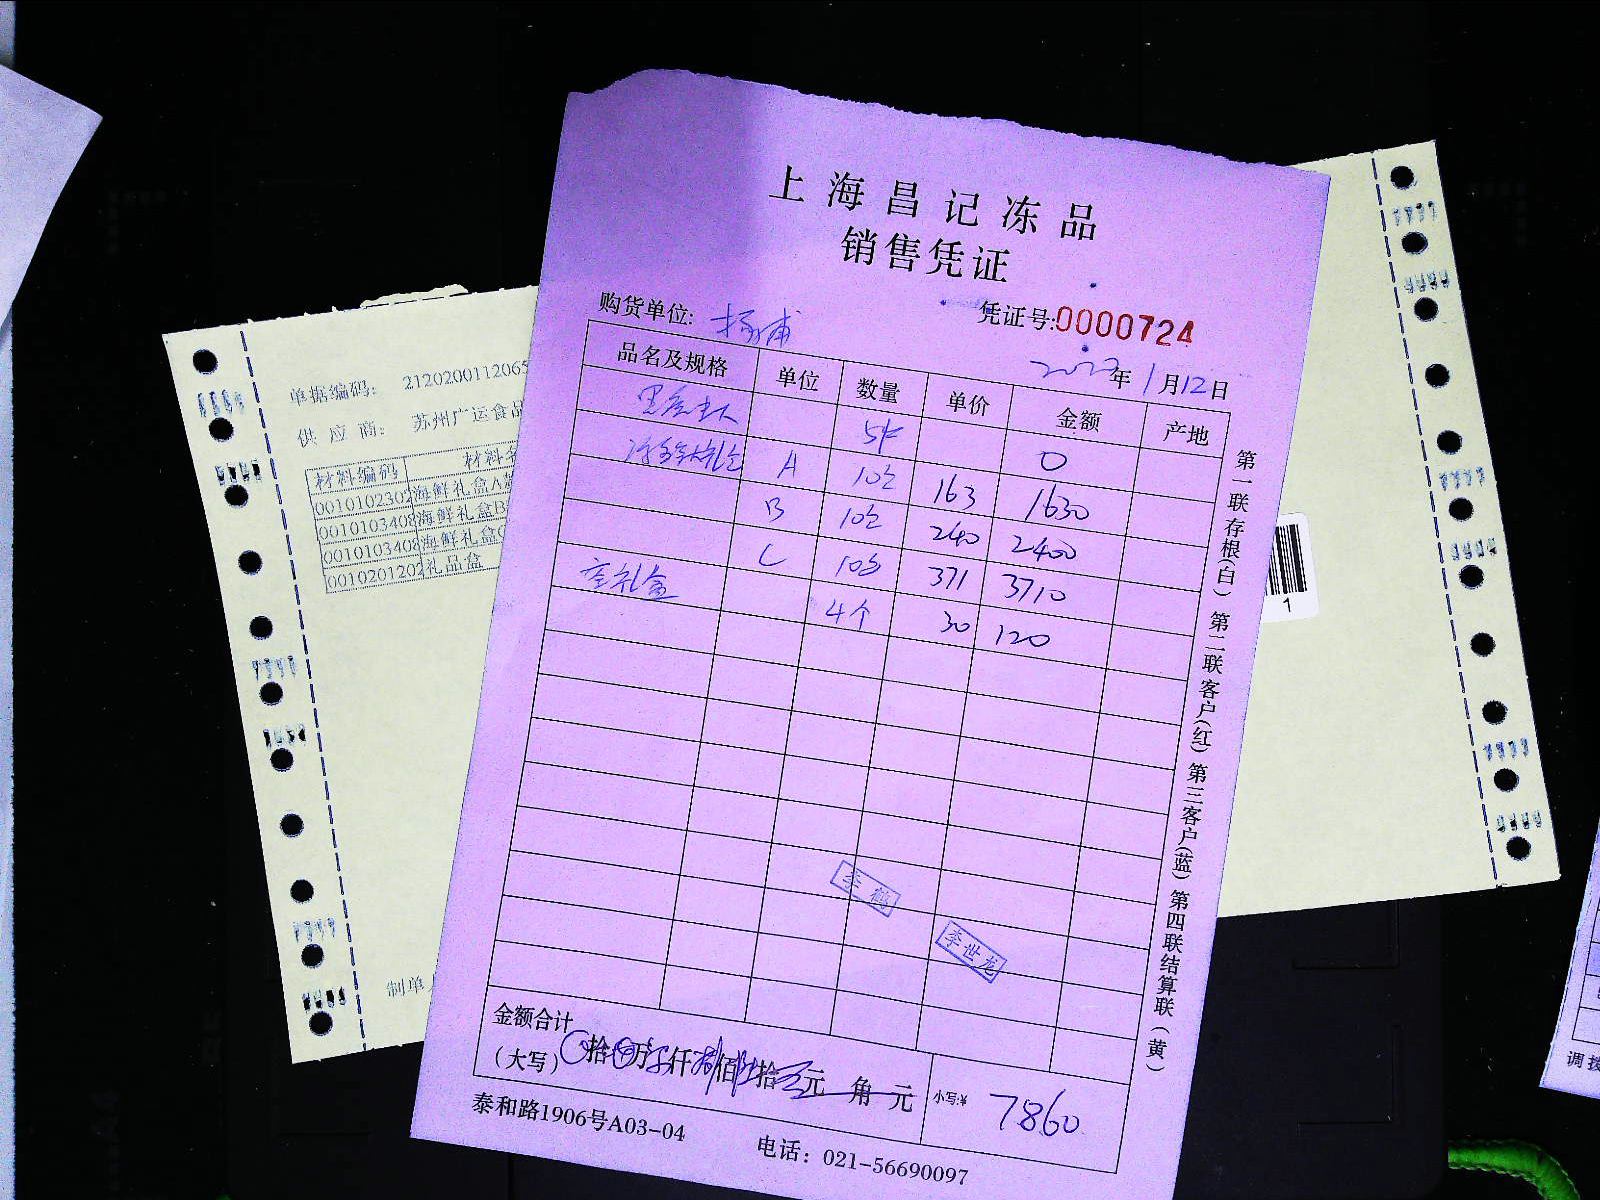 上海昌记冻品
销售凭证
购货单位: 杨浦
凭证号:0000724
年1月12日
品名及规格 单位 数量 单价 金额 产地
5件 0
A 10 163 1630
B 10 240 2400
C 10 371 3710
空礼盒 4个 30 120
李鹤
李世龙
金额合计
(大写) 拾 万 仟 佰 拾 元 角 元 小写:¥ 7860
泰和路1906号A03-04 电话: 021-56690097
第一联存根(白) 第二联客户(红) 第三客户(蓝) 第四联结算联(黄)
单据编码: 2120200112065
供应商: 苏州广运食品
材料编码 材料
001010230 海鲜礼盒A
0010103408 海鲜礼盒B
0010103408 海鲜礼盒C
0010201202 礼品盒
制单
1
调拨